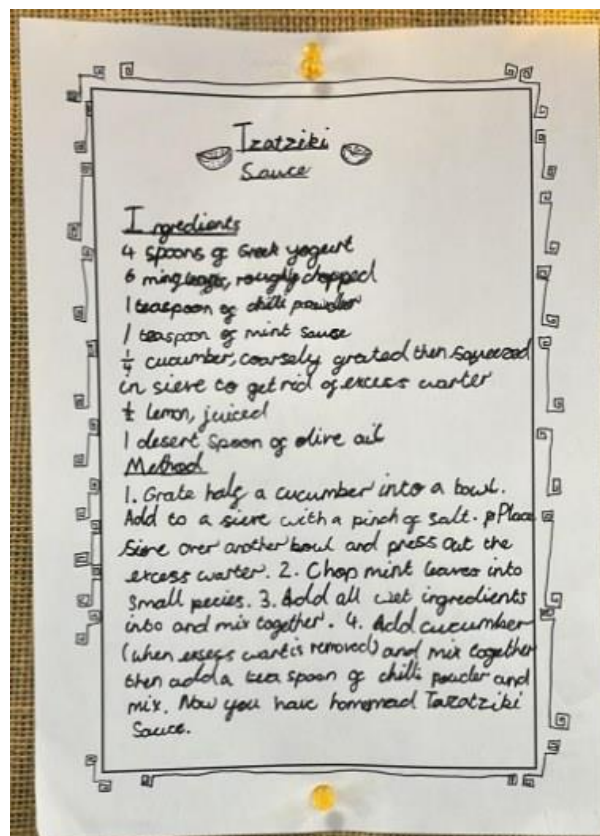 Tzatziki
Sauce
Ingredients
4 spoons of Greek yogurt
6 ming leages, roughly chopped
1 teaspoon of chilli powder
1 teaspoon of mint sauce
1/4 cucumber, coarsely grated then squeezed
in sieve to get rid of excess warter
1/2 lemon, juiced
1 desert spoon of olive oil
Method
1. Grate half a cucumber into a bowl.
Add to a sieve with a pinch of salt. Place
sieve over another bowl and press out the
excess warter. 2. Chop mint leaves into
small pecies. 3. Add all wet ingredients
into and mix together. 4. Add cucumber
(when exsess wart is removed) and mix together
then add a tea spoon of chilli powder and
mix. Now you have homemad Tazatziki
Sauce.